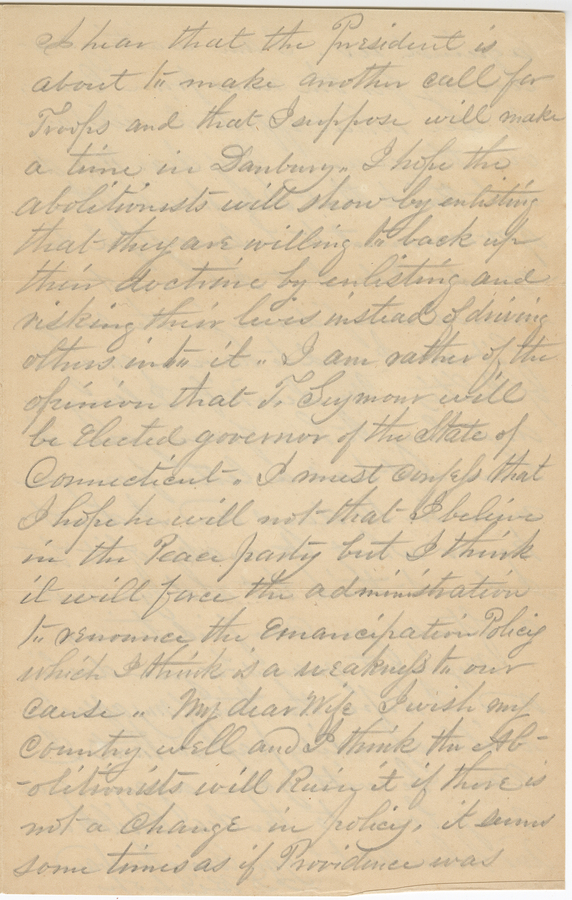 I hear that the President is
about to make another call for
Troops and that I suppose will make
a time in Danbury. I hope the
abolitionists will show by enlisting
that they are willing to back up
their doctrine by enlisting and
risking their lives instead of driving
others into it. I am rather of the
opinion that T. Seymour will
be Elected governor of the State of
Connecticut. I must confess that
I hope he will not that I believe
in the Peace party but I think
it will force the administration
to renounce the Emancipation Policy
which I think is a weakness to our
cause. My dear Wife I wish my
Country well and I think the Ab-
-olitionists will Ruin it if there is
not a Change in policy, it seems
some times as if Providence was